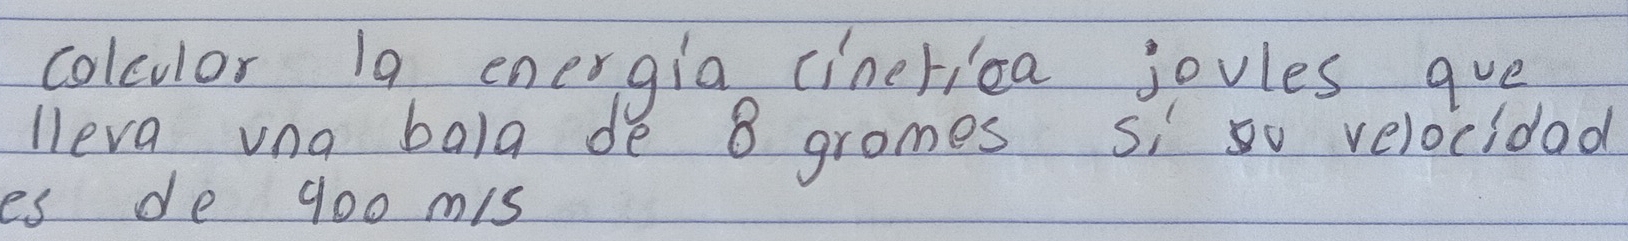 colcular la energía cinética joules que
lleva una bala de 8 gramos si su velocidad
es de 900 m/s